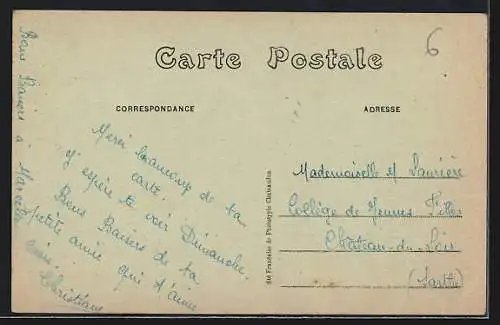 Carte Postale
6
CORRESPONDANCE
ADRESSE
Merci beaucoup de ta
carte.
J'espère te voir Dimanche.
Bons Baisers de ta
petite amie qui t'aime
Christiane
Bons Baisers à
Mademoiselle M
Collège de Jeunes Filles
Château-du-Loir
(Sarthe)